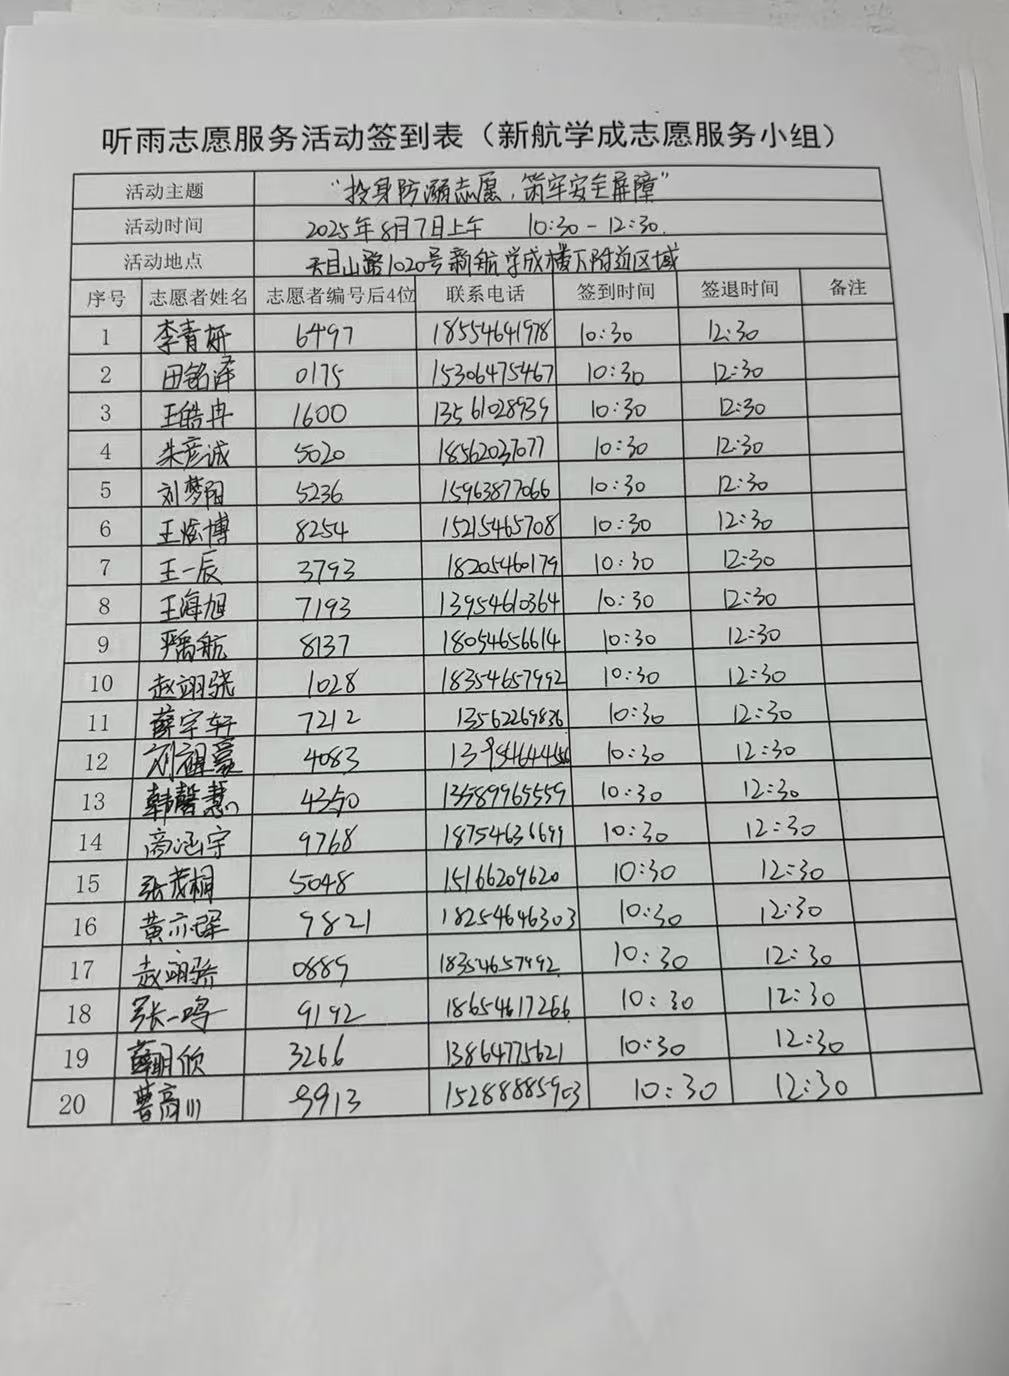 听雨志愿服务活动签到表（新航学成志愿服务小组）
活动主题 “投身防溺志愿，筑牢安全屏障”
活动时间 2025年8月7日上午 10:30-12:30.
活动地点 天目山路1020号新航学成楼下附近区域
序号 志愿者姓名 志愿者编号后4位 联系电话 签到时间 签退时间 备注
1 李青妍 6497 18554641978 10:30 12:30
2 田铭泽 0175 15306475467 10:30 12:30
3 王皓冉 1600 13561028939 10:30 12:30
4 朱彦诚 5020 18562037077 10:30 12:30
5 刘梦阳 5236 15963877066 10:30 12:30
6 王炫博 8254 15215465708 10:30 12:30
7 王一辰 3793 18205460179 10:30 12:30
8 王海旭 7193 13954610364 10:30 12:30
9 严禹航 8137 18054656614 10:30 12:30
10 赵翊骁 1028 18354657992 10:30 12:30
11 薛宇轩 7212 13562269836 10:30 12:30
12 刘祖豪 4083 10:30 12:30
13 韩馨慧 4350 13589965559 10:30 12:30
14 高涵宇 9768 10:30 12:30
15 张茂桐 5048 15166209620 10:30 12:30
16 黄亦琛 9821 18254646303 10:30 12:30
17 赵翊骄 0889 18354657992 10:30 12:30
18 张一鸣 9192 18654617266 10:30 12:30
19 薛明欣 3266 13864775621 10:30 12:30
20 曹高川 9913 15288885903 10:30 12:30